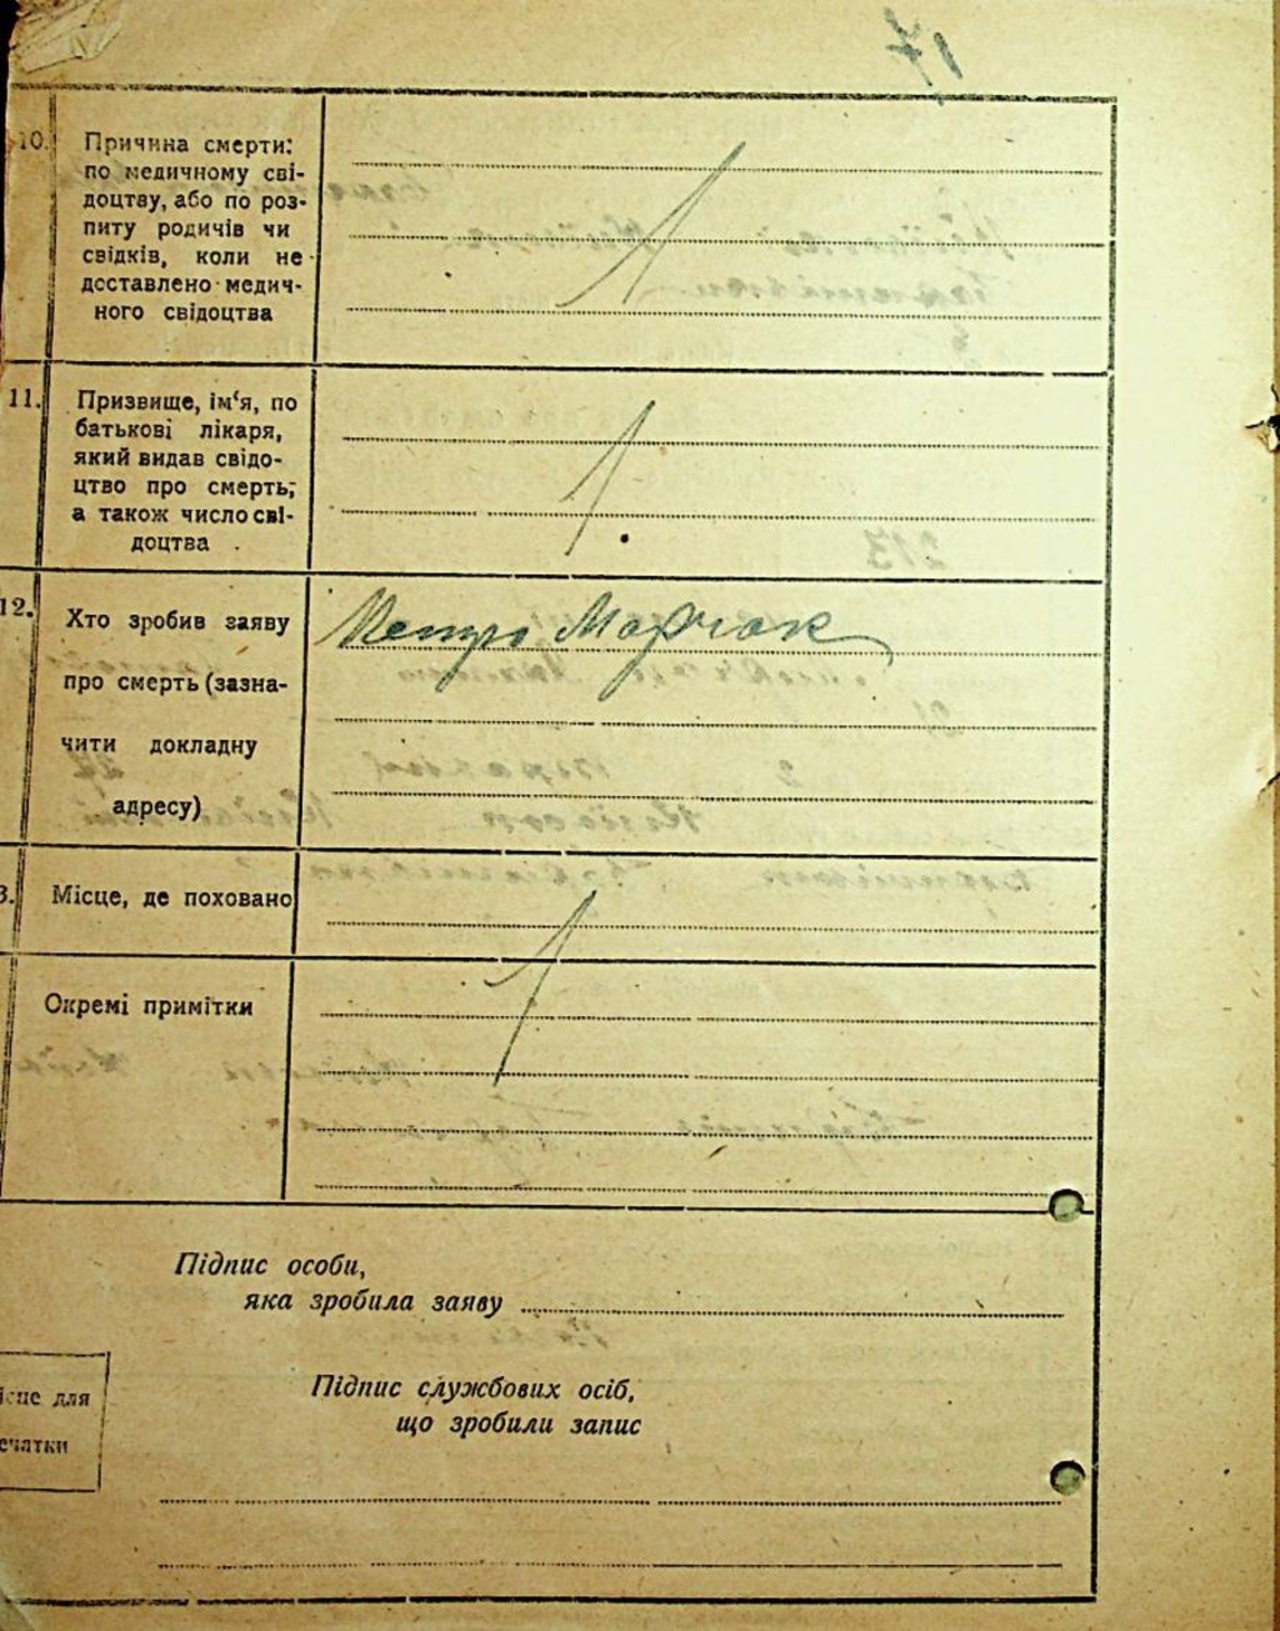 17
10. Причина смерти:
по медичному сві-
доцтву, або по роз-
питу родичів чи
свідків, коли не
доставлено медич-
ного свідоцтва
11. Призвище, ім‘я, по
батькові лікаря,
який видав свідо-
цтво про смерть,
а також число сві-
доцтва
12. Хто зробив заяву
про смерть (зазна-
чити докладну
адресу)
Петро
3. Місце, де поховано
Окремі примітки
Підпис особи,
яка зробила заяву
ісце для
ечатки
Підпис службових осіб,
що зробили запис